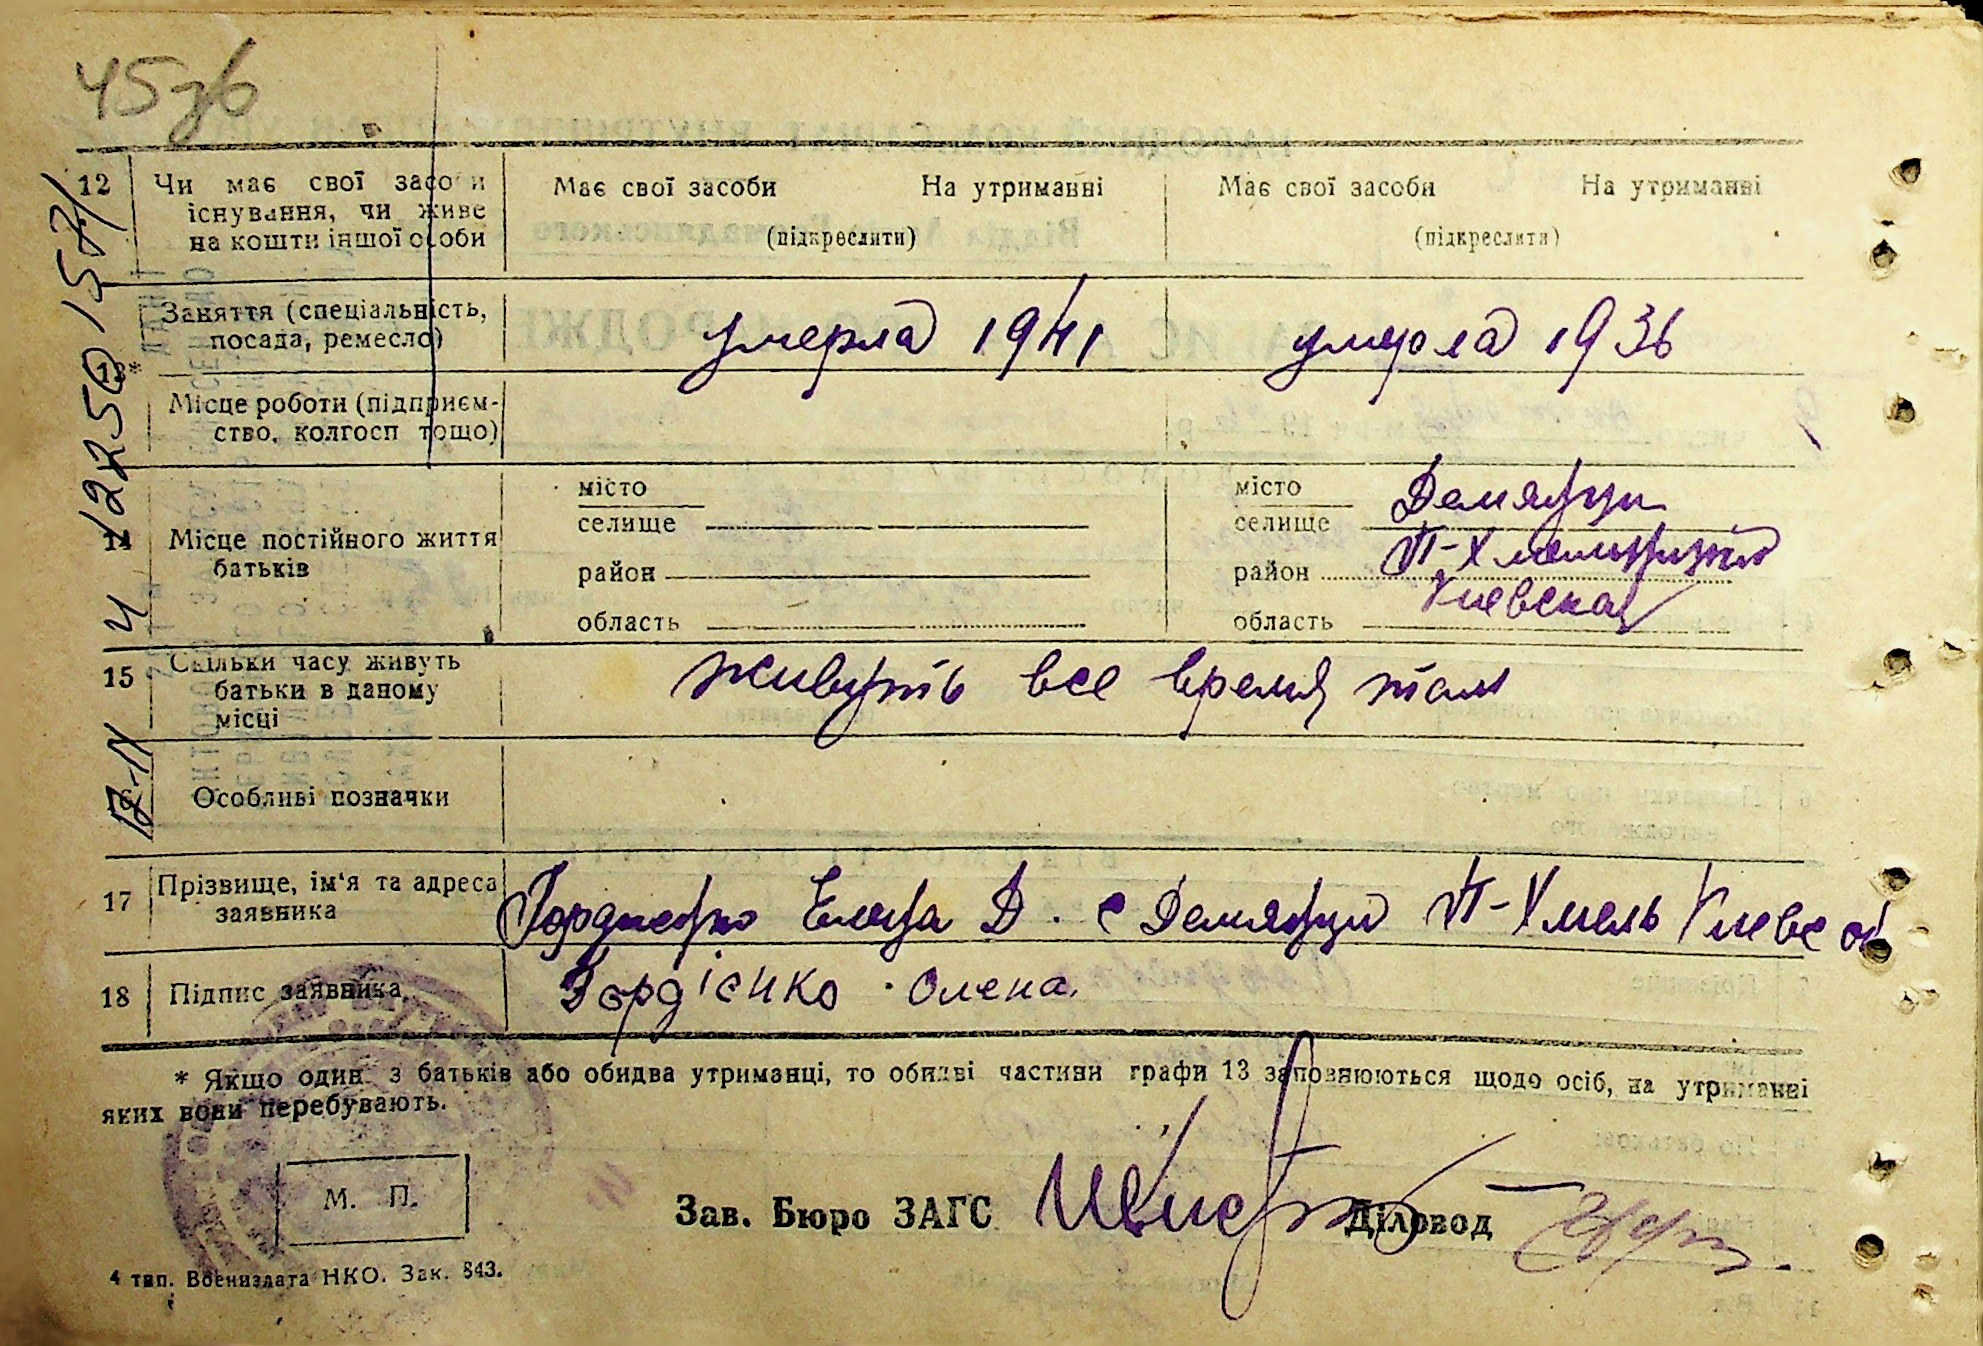 45зв
12 Чи має свої засоби Має свої засоби На утриманні Має свої засоби На утриманні
існування, чи живе
на кошти іншої особи (підкреслити) (підкреслити)
13* Заняття (спеціальність,
посада, ремесло) умерла 1941 умерла 1936
Місце роботи (підприєм-
ство, колгосп тощо)
14 Місце постійного життя
батьків
місто
селище
район
область
місто Демянци
селище
район П-Хмельницкий
область Киевская
15 Скільки часу живуть
батьки в даному
місці живуть все время там
16 Особливі позначки
17 Прізвище, ім'я та адреса
заявника Гордиенко Елена Д. с Демянци П-Хмель Киевс об
18 Підпис заявника Гордієнко Олена.
* Якщо один з батьків або обидва утриманці, то обидві частини графи 13 заповнюються щодо осіб, на утриманні
яких вони перебувають.
М. П.
Зав. Бюро ЗАГС Діловод
4 тип. Воениздата НКО. Зак. 843.